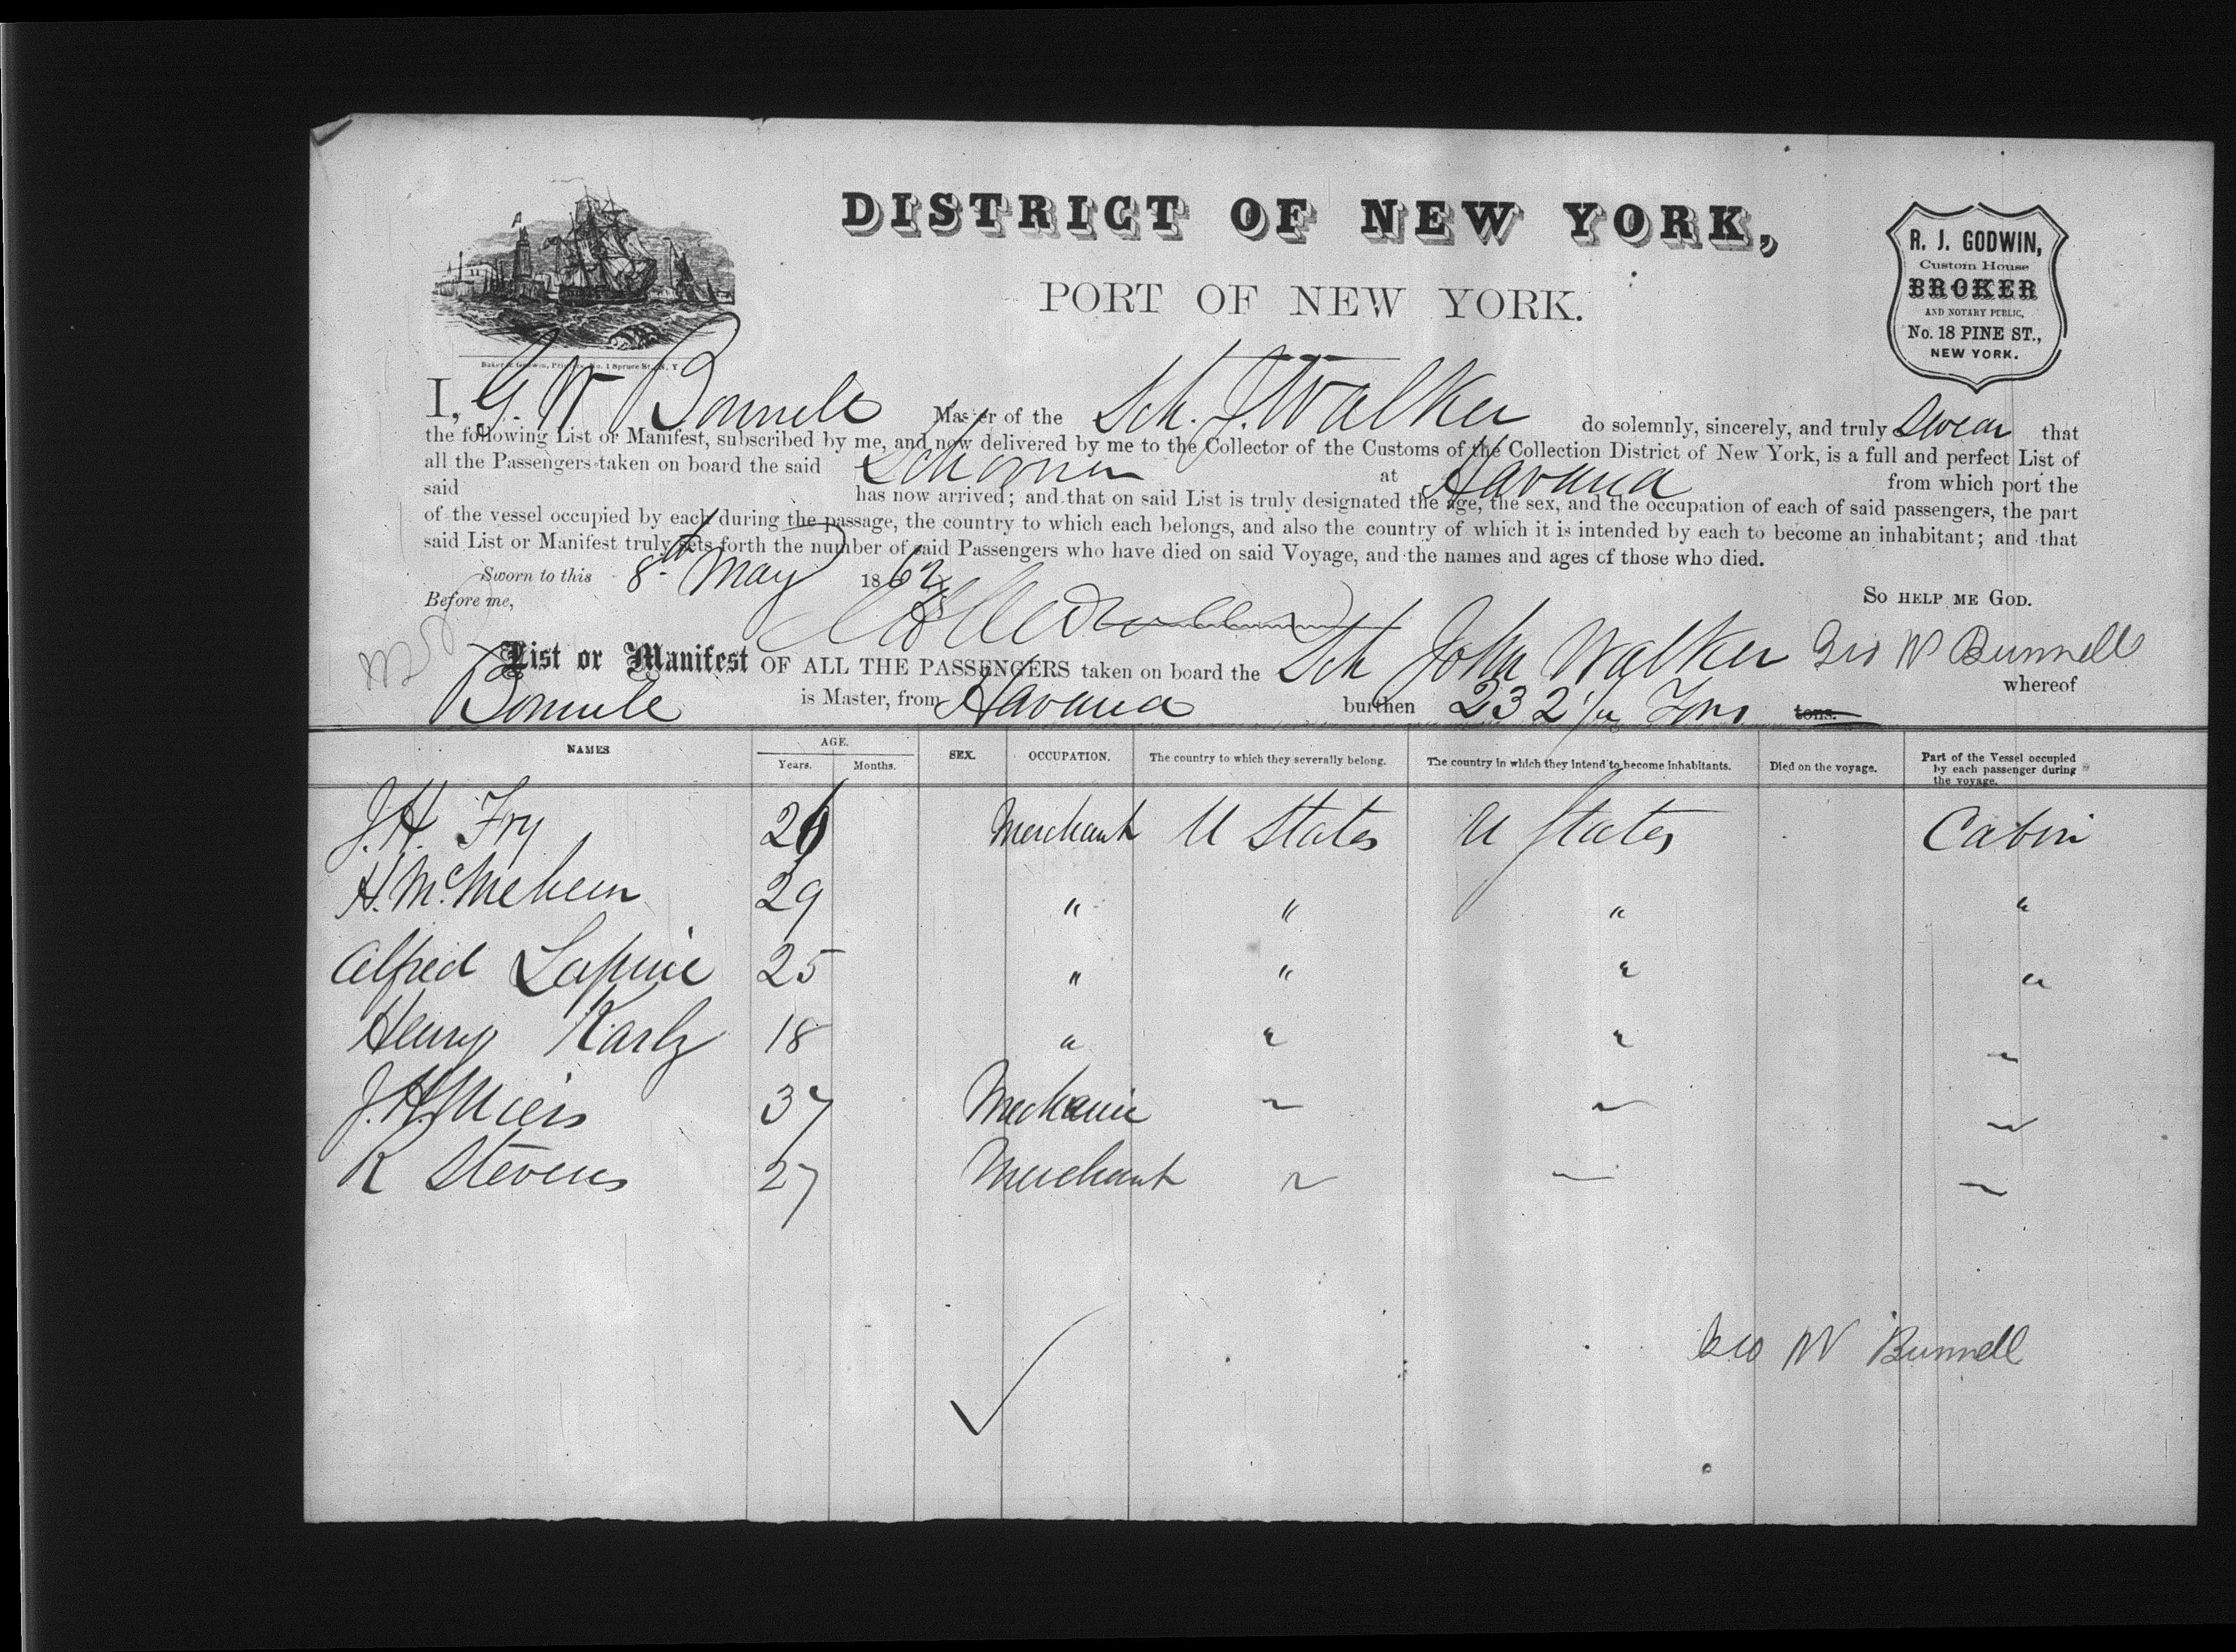 DISTRICT OF NEW YORK,
PORT OF NEW YORK.
R. J. GODWIN,
Custom House
BROKER
AND NOTARY PUBLIC,
No. 18 PINE ST.,
NEW YORK.
Baker & Godwin, Printers, No. 1 Spruce St., N. Y
I, G. W Bonnele Master of the Sch. J. Walker do solemnly, sincerely, and truly swear that
the following List or Manifest, subscribed by me, and now delivered by me to the Collector of the Customs of the Collection District of New York, is a full and perfect List of
all the Passengers taken on board the said Schooner at Havana from which port the
said has now arrived; and that on said List is truly designated the age, the sex, and the occupation of each of said passengers, the part
of the vessel occupied by each during the passage, the country to which each belongs, and also the country of which it is intended by each to become an inhabitant; and that
said List or Manifest truly sets forth the number of said Passengers who have died on said Voyage, and the names and ages of those who died.
Sworn to this 8th May 1862
Before me,
SO HELP ME GOD.
Geo W Bunnell
List or Manifest OF ALL THE PASSENGERS taken on board the Sch John Walker whereof
Bonnele is Master, from Havana burthen 232 Tons tons.
NAMES AGE. Years. Months. SEX. OCCUPATION. The country to which they severally belong. The country in which they intend to become inhabitants. Died on the voyage. Part of the Vessel occupied by each passenger during the voyage.
J. H. Fry 26 Merchant U States U States Cabin
H. McMehein 29 " " " "
Alfred Lapine 25 " " " "
Henry Karly 18 " " " "
J. H. Miers 37 Mechanic " " "
R Stevens 27 Merchant " " "
Geo W Bunnell